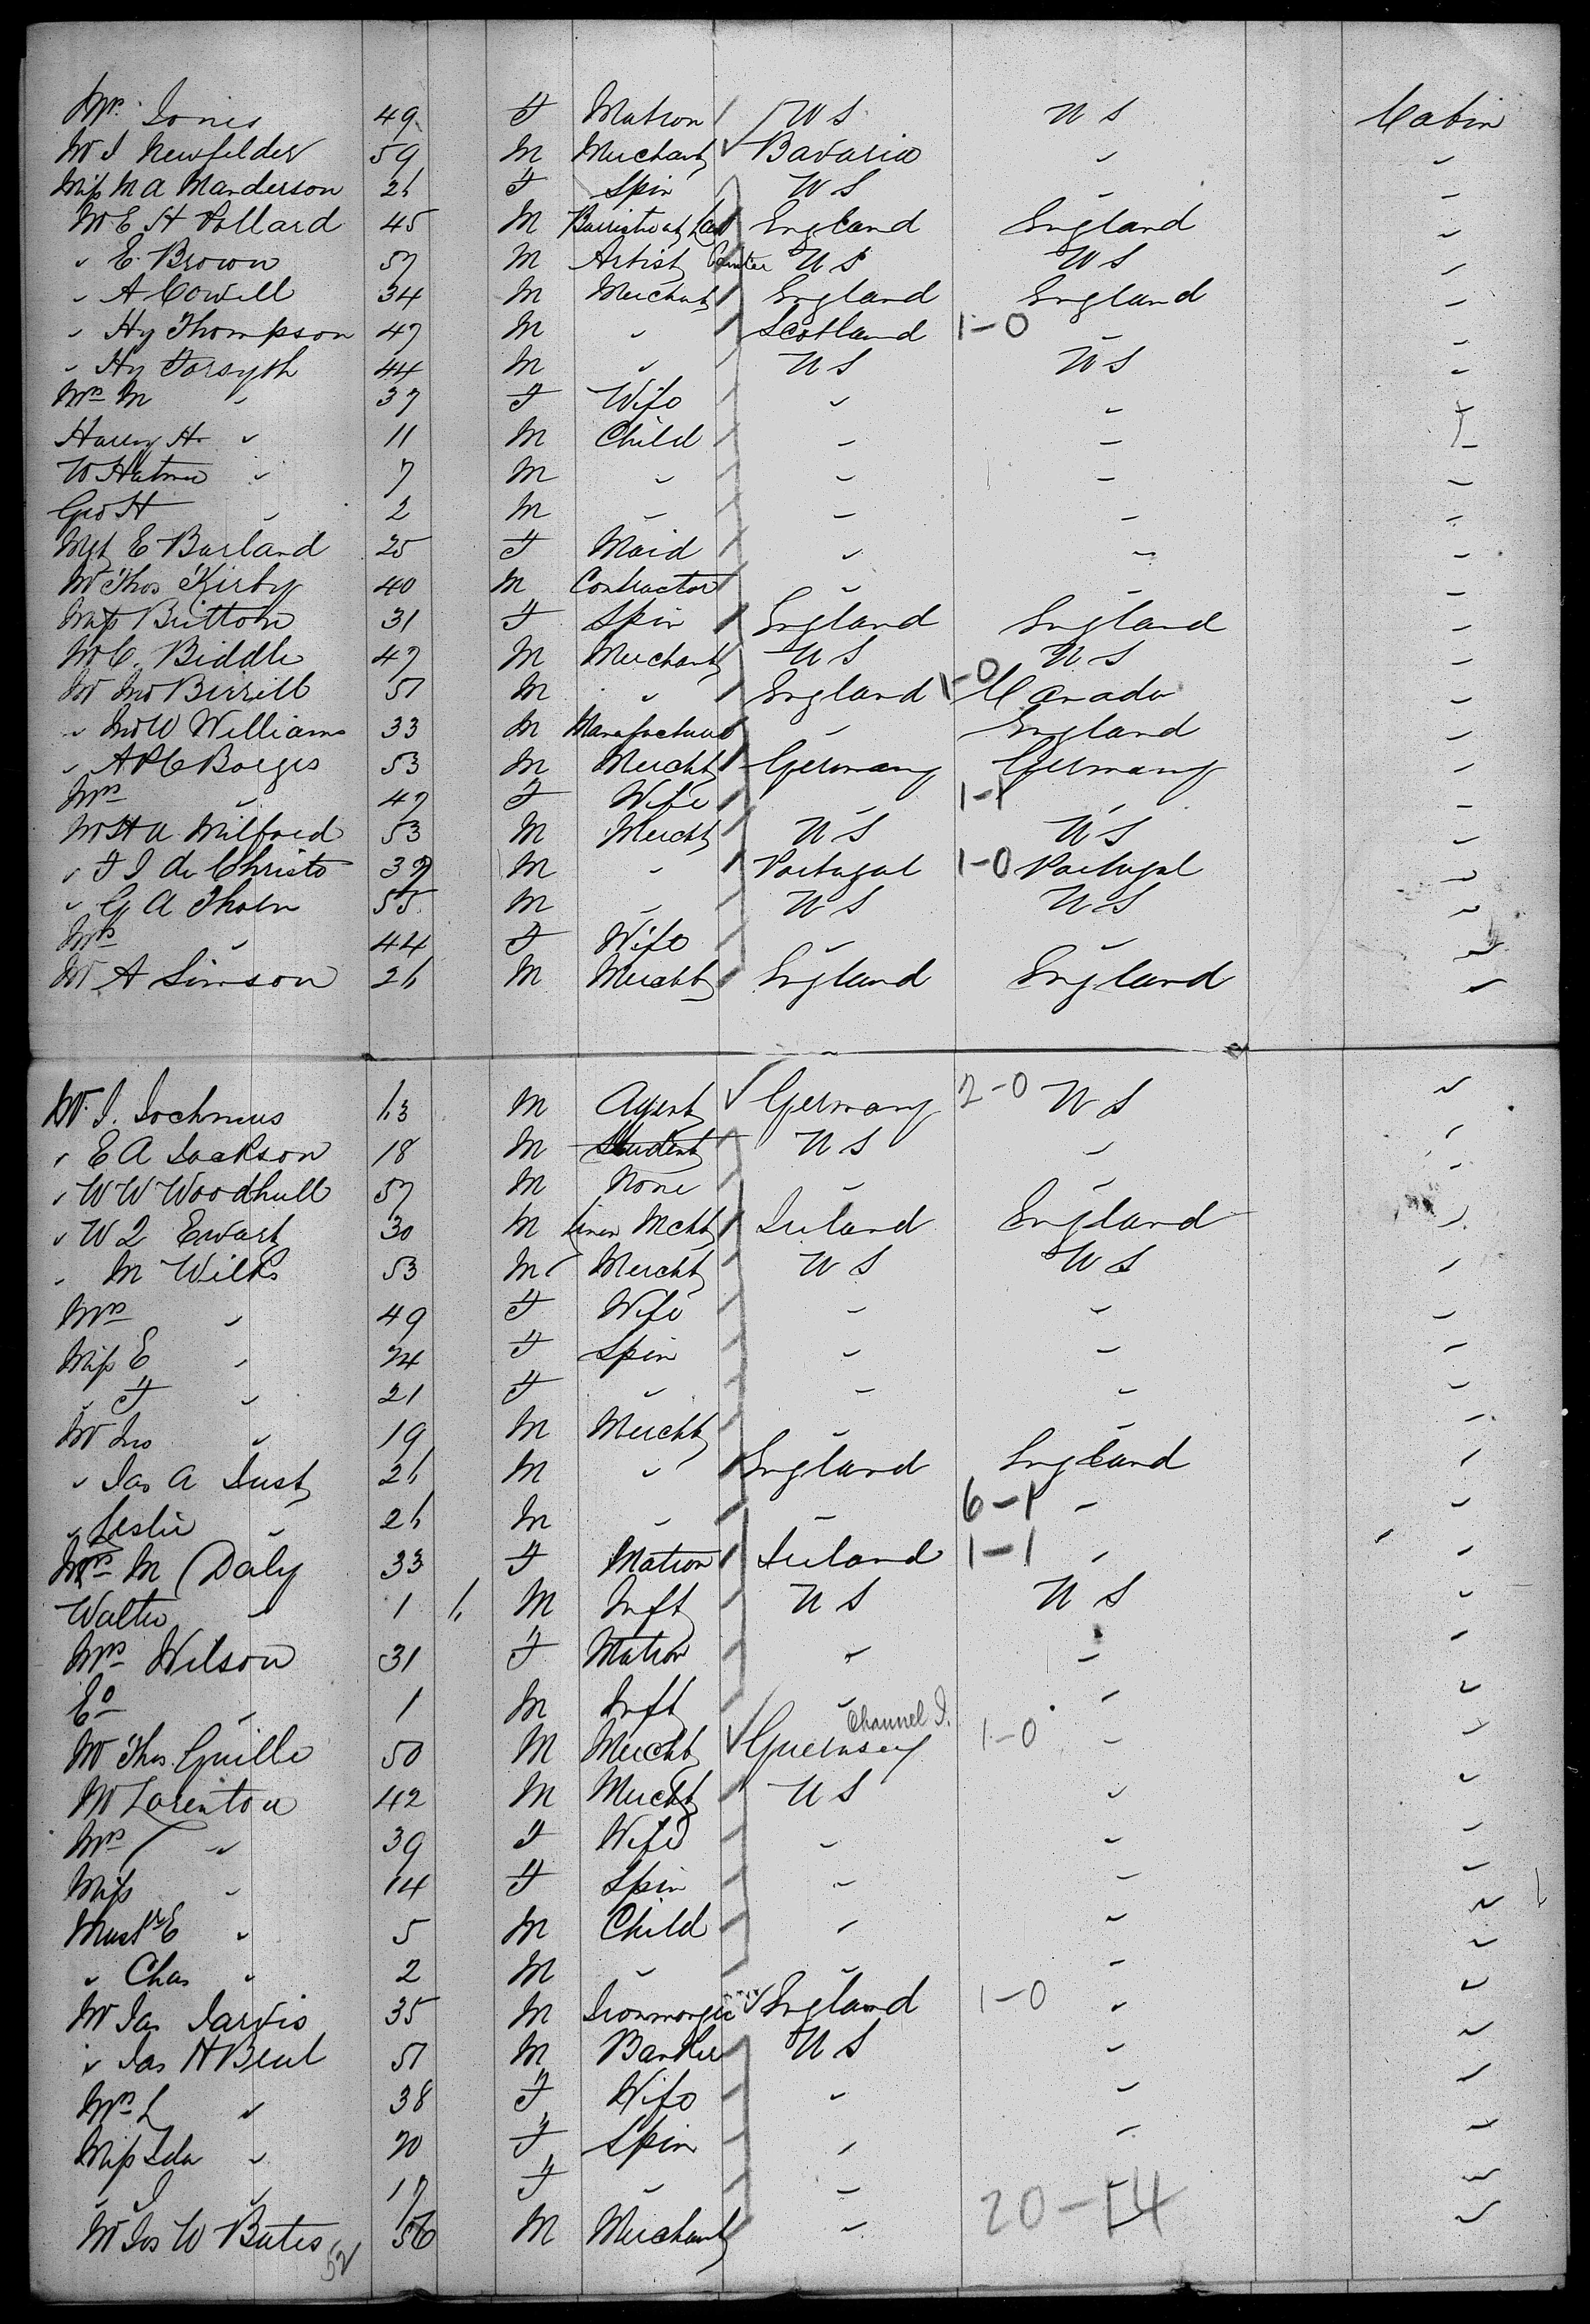 Mrs. Jones 49 F Matron U S U S Cabin
Mr J Newfelder 59 M Merchant Bavaria "
Miss M A Manderson 26 F Spin U S " "
Mr E H Pollard 45 M Barrister at Law England England "
" E. Brown 57 M Artist Painter U S U S "
" A Cowell 34 M Merchant England England "
" Hy Thompson 47 M " Scotland 1-0 " "
" Hy Forsyth 44 M " U S U S "
Mrs M " 37 F Wife " " "
Harry H. " 11 M Child " " "
W " 7 M " " " "
Geo H " 2 M " " " "
Mgt E Burland 25 F Maid " " "
Mr Thos Kirby 40 M Contractor " " "
Miss Britton 31 F Spin England England "
Mr C. Biddle 47 M Merchant U S U S "
Mr Jno Birrill 51 M " England 1-0 Canada "
" Jno W Williams 33 M Manufacturer " England "
" A P C Borges 53 M Mercht Germany Germany "
Mrs " 47 F Wife " 1-1 " "
Mr H A Milford 53 M Mercht U S U S "
" F J de Christo 39 M " Portugal 1-0 Portugal "
" G A Thorn 55 M " U S U S "
Mrs " 44 F Wife " " "
Mr A Simson 26 M Mercht England England "
Mr. J. Jochmus 63 M Agent Germany 2-0 U S "
" E A Jackson 18 M Student U S " "
" W W Woodhull 57 M None " " "
" W Q Ewart 30 M Linen Mcht Ireland England "
" M Wilks 53 M Mercht U S U S "
Mrs " 49 F Wife " " "
Miss E " 24 F Spin " " "
" F " 21 F " " " "
Mr Jno " 19 M Mercht " " "
" Jas A Just 26 M " England England "
" Leslie " 26 M " " 6-1 " "
Mrs M Daly 33 F Matron Ireland 1-1 " "
Walter " 1 6 M Inft U S U S "
Mrs Wilson 31 F Matron " " "
Eo " 1 M Inft " " "
Mr Thos. Guille 50 M Mercht Guernsey Channel I. 1-0 " "
Mr Zorenton 42 M Mercht U S " "
Mrs " 39 F Wife " " "
Miss " 14 F Spin " " "
Mastr E " 5 M Child " " "
" Chas " 2 M " " " "
Mr Jas Jarvis 35 M Ironmonger England 1-0 " "
" Jas H Beal 51 M Banker U S " "
Mrs L " 38 F Wife " " "
Miss Ida " 20 F Spin " " "
" J " 17 F " " " "
Mr Jos W Bates 56 M Merchant " " "
52
20-14